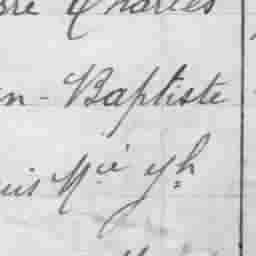 rre Charles
n-Baptiste
uis Mie Jh